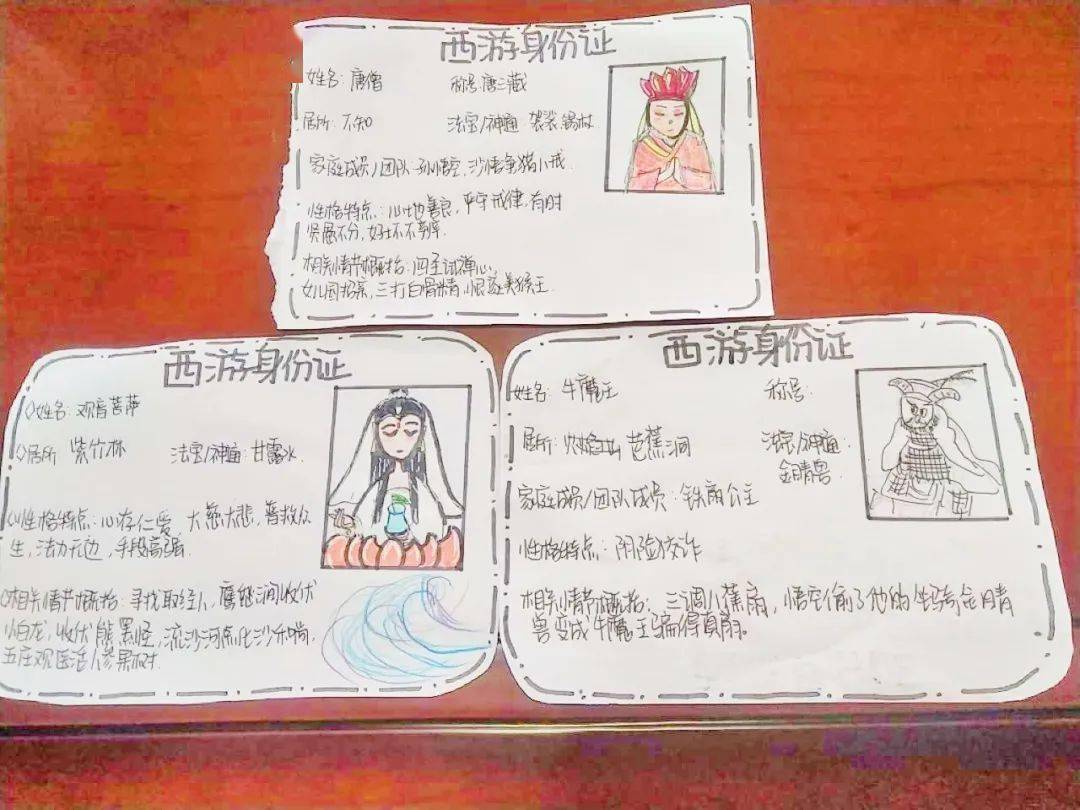 西游身份证
姓名：唐僧 称号：唐三藏
居所：不知 法宝/神通 袈裟.锡杖.
家庭成员/团队 孙悟空，沙悟净猪八戒.
性格特点：心地善良，严守戒律，有时
贤愚不分，好坏不辨.
相关情节概括：四圣试禅心，
女儿国招亲，三打白骨精，恨逐美猴王.
西游身份证
姓名：观音菩萨
居所 紫竹林 法宝/神通：甘露水.
性格特点：心存仁爱，大慈大悲，普救众
生，法力无边，手段高强.
相关情节概括：寻找取经人，鹰愁涧收伏
小白龙，收伏熊黑怪，流沙河点化沙和尚，
五庄观医活人参果树.
西游身份证
姓名：牛魔王 称号：
居所：火焰山 芭蕉洞 法宝/神通：
金睛兽
家庭成员/团队成员：铁扇公主
性格特点：阴险狡诈
相关情节概括：三调八蕉扇，悟空偷了他的坐骑金睛
兽变成牛魔王骗得真扇.